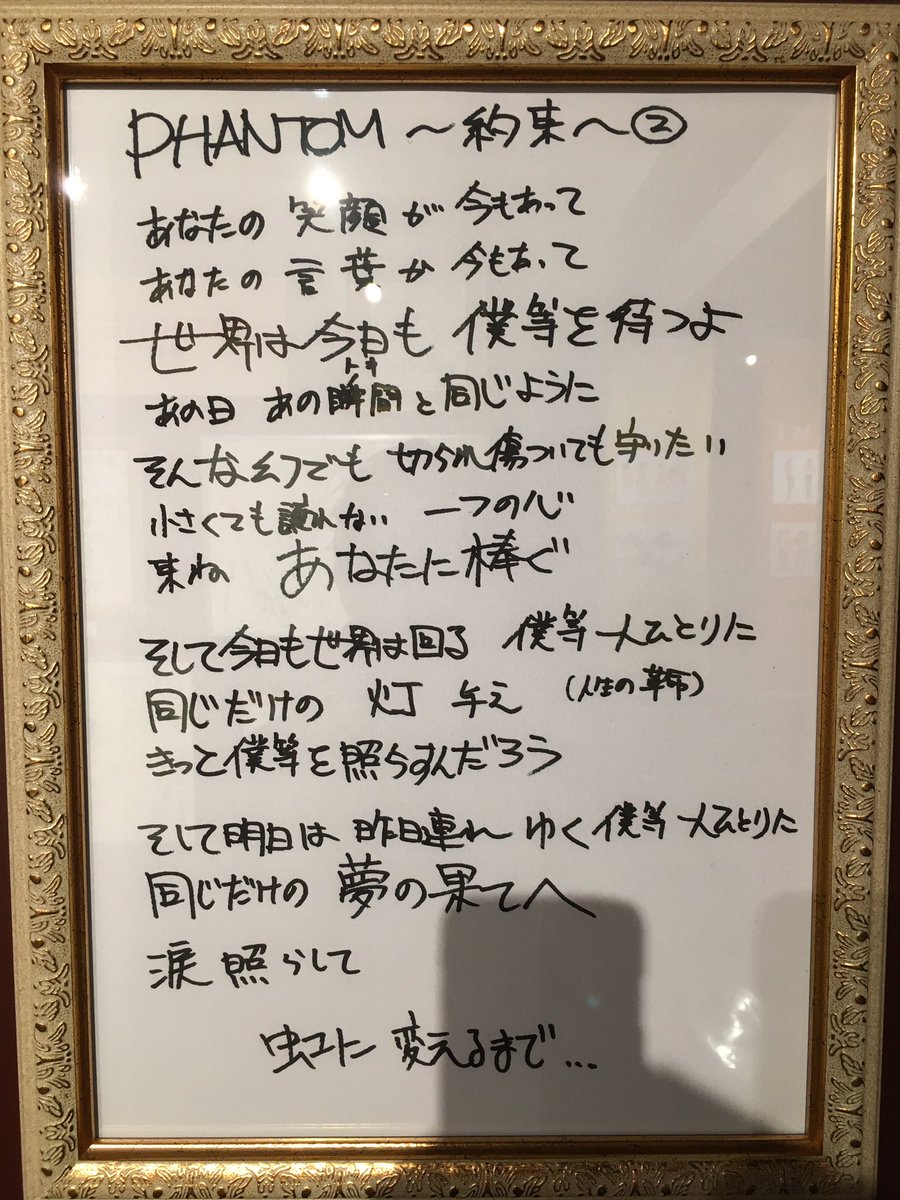 PHANTOM ～約束～②
あなたの 笑顔が 今もあって
あなたの 言葉が 今もあって
世界は今日も 僕等を待つよ
トキ
あの日 あの瞬間と同じように
そんな幻でも 切られ傷ついても守りたい
小さくても譲れない 一つの心
束ね あなたに捧ぐ
そして今日も世界は回る 僕等 一人ひとりに
同じだけの 灯 与え (人生の幕吊)
きっと僕等を照らすんだろう
そして明日は 昨日連れ ゆく 僕等 一人ひとりに
同じだけの 夢の果てへ
涙 照らして
虹に 変えるまで…